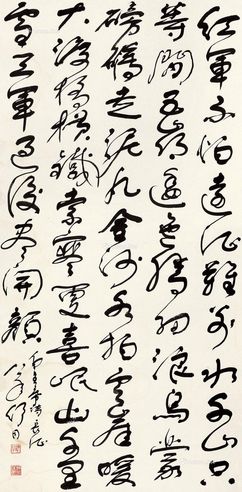 紅軍不怕遠征難萬水千山只
等閒五嶺逶迤騰細浪烏蒙
磅礴走泥丸金沙水拍雲崖暖
大渡橋橫鐵索寒更喜岷山千里
雪三軍過後盡開顏
毛主席詩長征
舒同